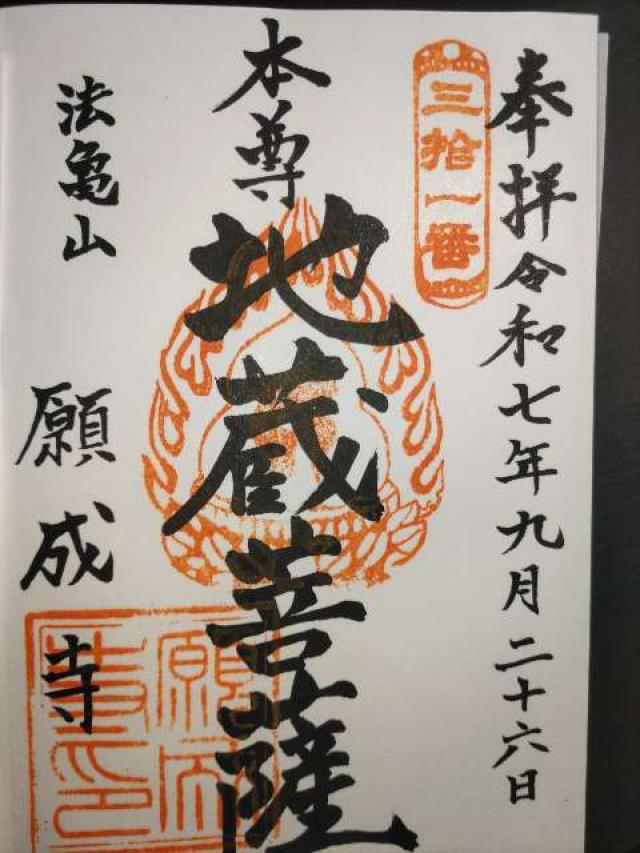 奉拝令和七年九月二十六日
三拾一番
本尊
地蔵菩薩
法亀山
願成寺
願成寺印